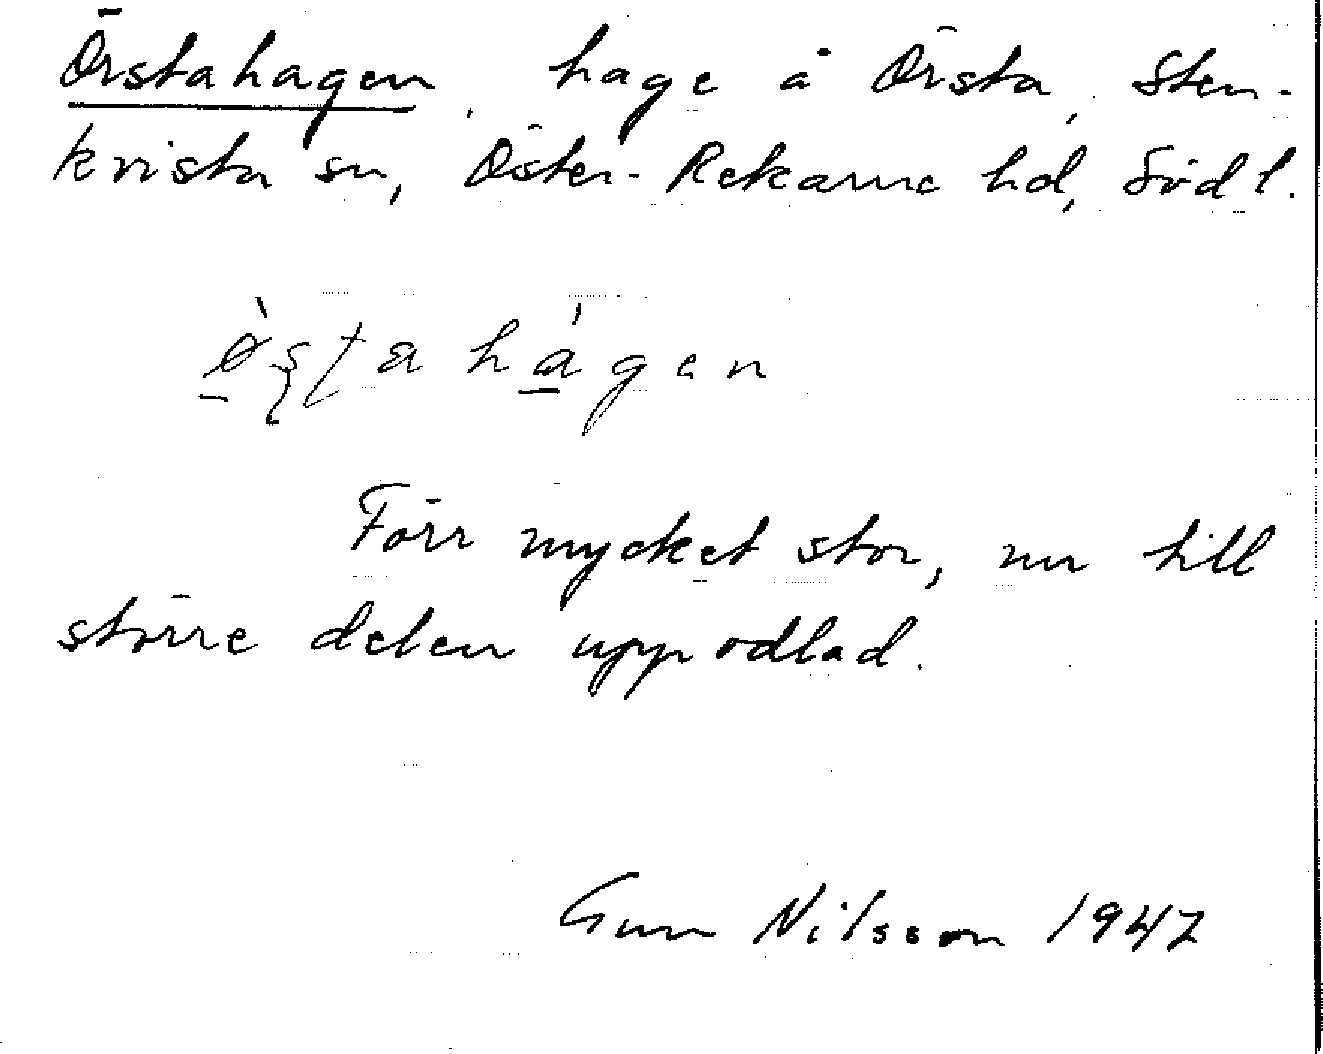 Örstahagen, hage å Örsta, Sten-
kvista sn, Öster-Rekarne hd, Södl.
ø̀ʂʈahágen
Förr mycket stor, nu till
större delen uppodlad.
Gun Nilsson 1947